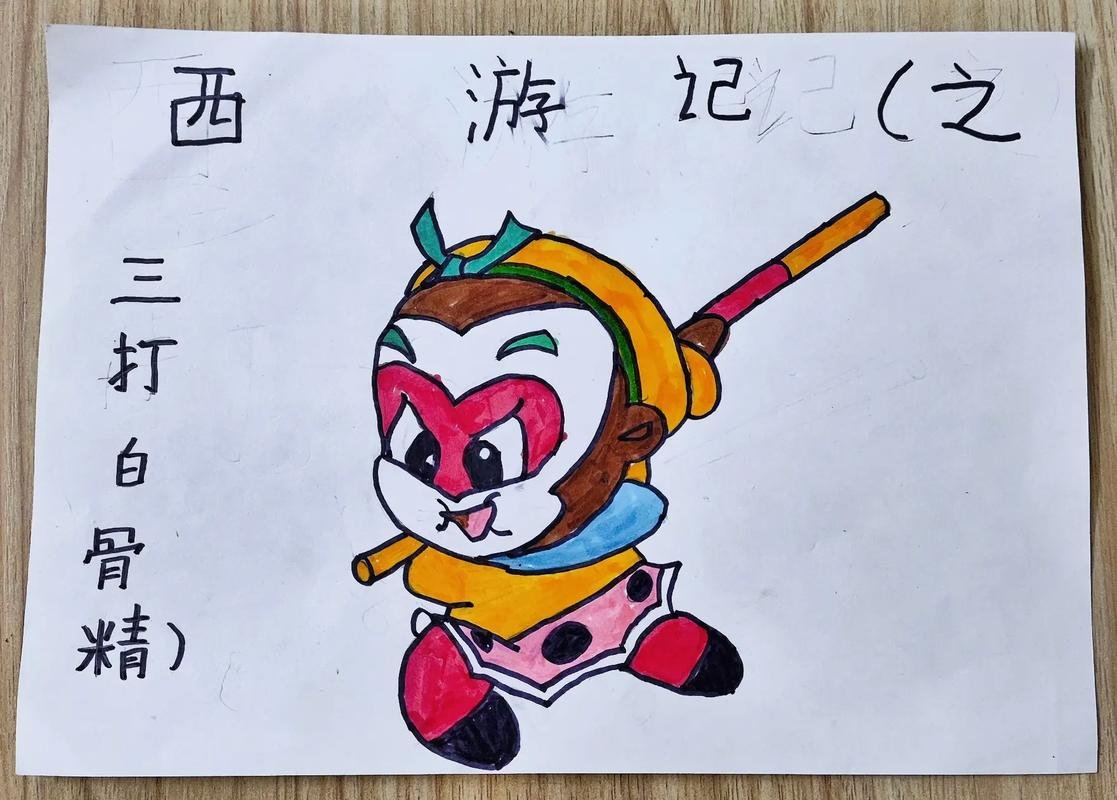 西游记(之
三打白骨精)